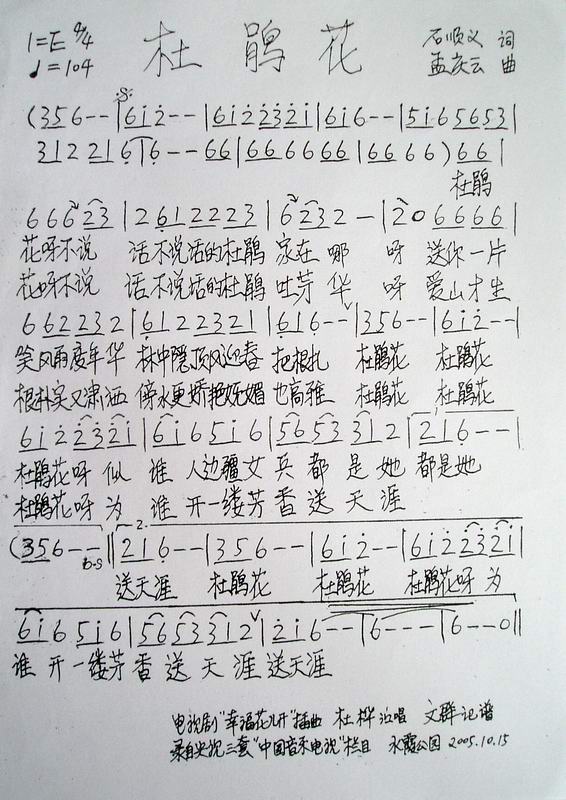 1=E 4/4 杜鹃花 石顺义 词
♩=104 孟庆云 曲
(356-- | 6i2-- | 6i2232i | 6i6-- | 5i65653 |
3122216 | 6--66 | 6666666 | 6666) 66 |
杜鹃
66623 | 26122223 | 6232- | 206666 |
花呀不说 话不说话的杜鹃 家在哪 呀 送你一片
花呀不说 话不说话的杜鹃 吐芳华 呀 爱山才生
662232 | 6122321 | 616-- | 356-- | 6i2-- |
笑风雨度年华 林中隐顶风迎春 把根扎 杜鹃花 杜鹃花
根朴实又潇洒 傍水更娇艳妩媚 也高雅 杜鹃花 杜鹃花
6i2232i | 6i65i6 | 5653312 | 216-- |
杜鹃花呀 似 谁 人边疆女兵都是她 都是她
杜鹃花呀 为 谁 开一缕芳香送天涯
(356-- || 2. 216-- | 356-- | 6i2-- | 6i2232i |
D.S 送天涯 杜鹃花 杜鹃花 杜鹃花呀 为
6i65i6 | 5653312 | 2i6-- | 6--- | 6--0 ||
谁 开一缕芳香送天涯 送天涯
电视剧"幸福花儿开"插曲 杜桦 演唱 文群记谱
录自央视三套"中国音乐电视"栏目 永霞公园 2005.10.15